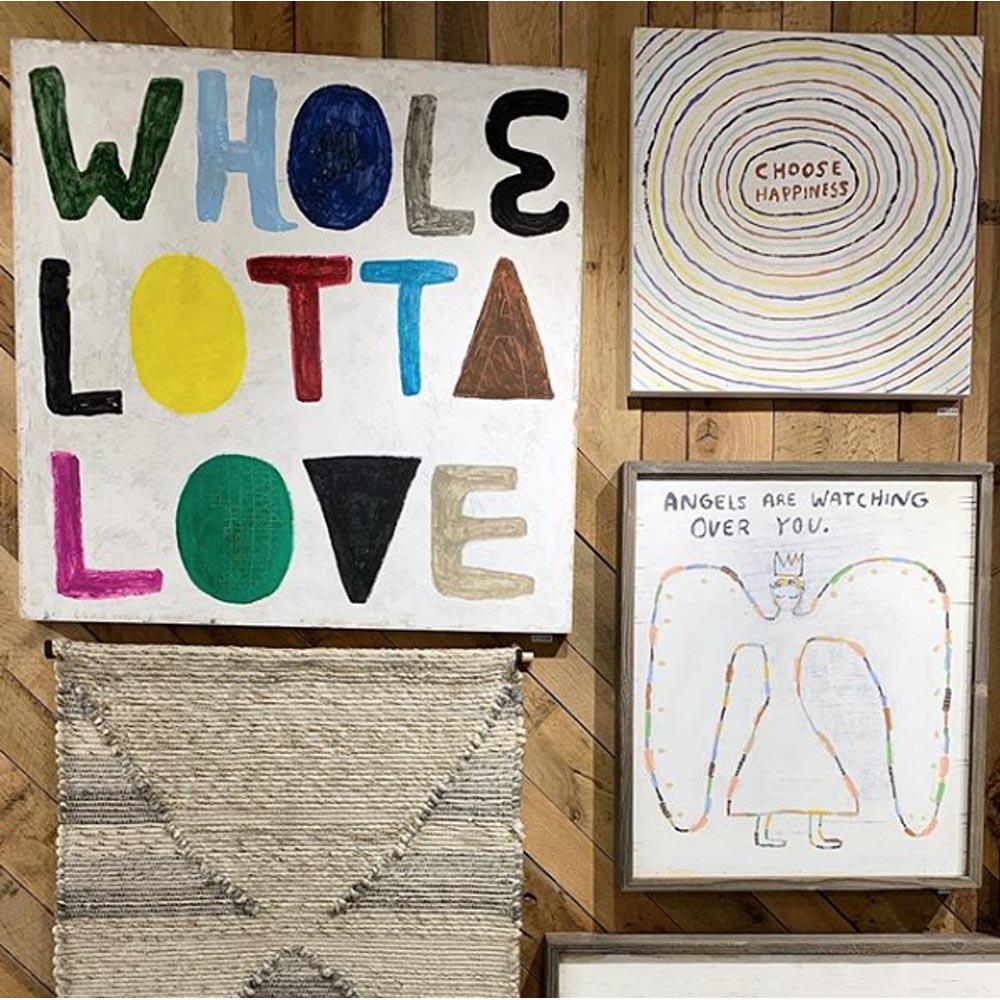 WHOLE
LOTTA
LOVE
CHOOSE
HAPPINESS
ANGELS ARE WATCHING
OVER YOU.